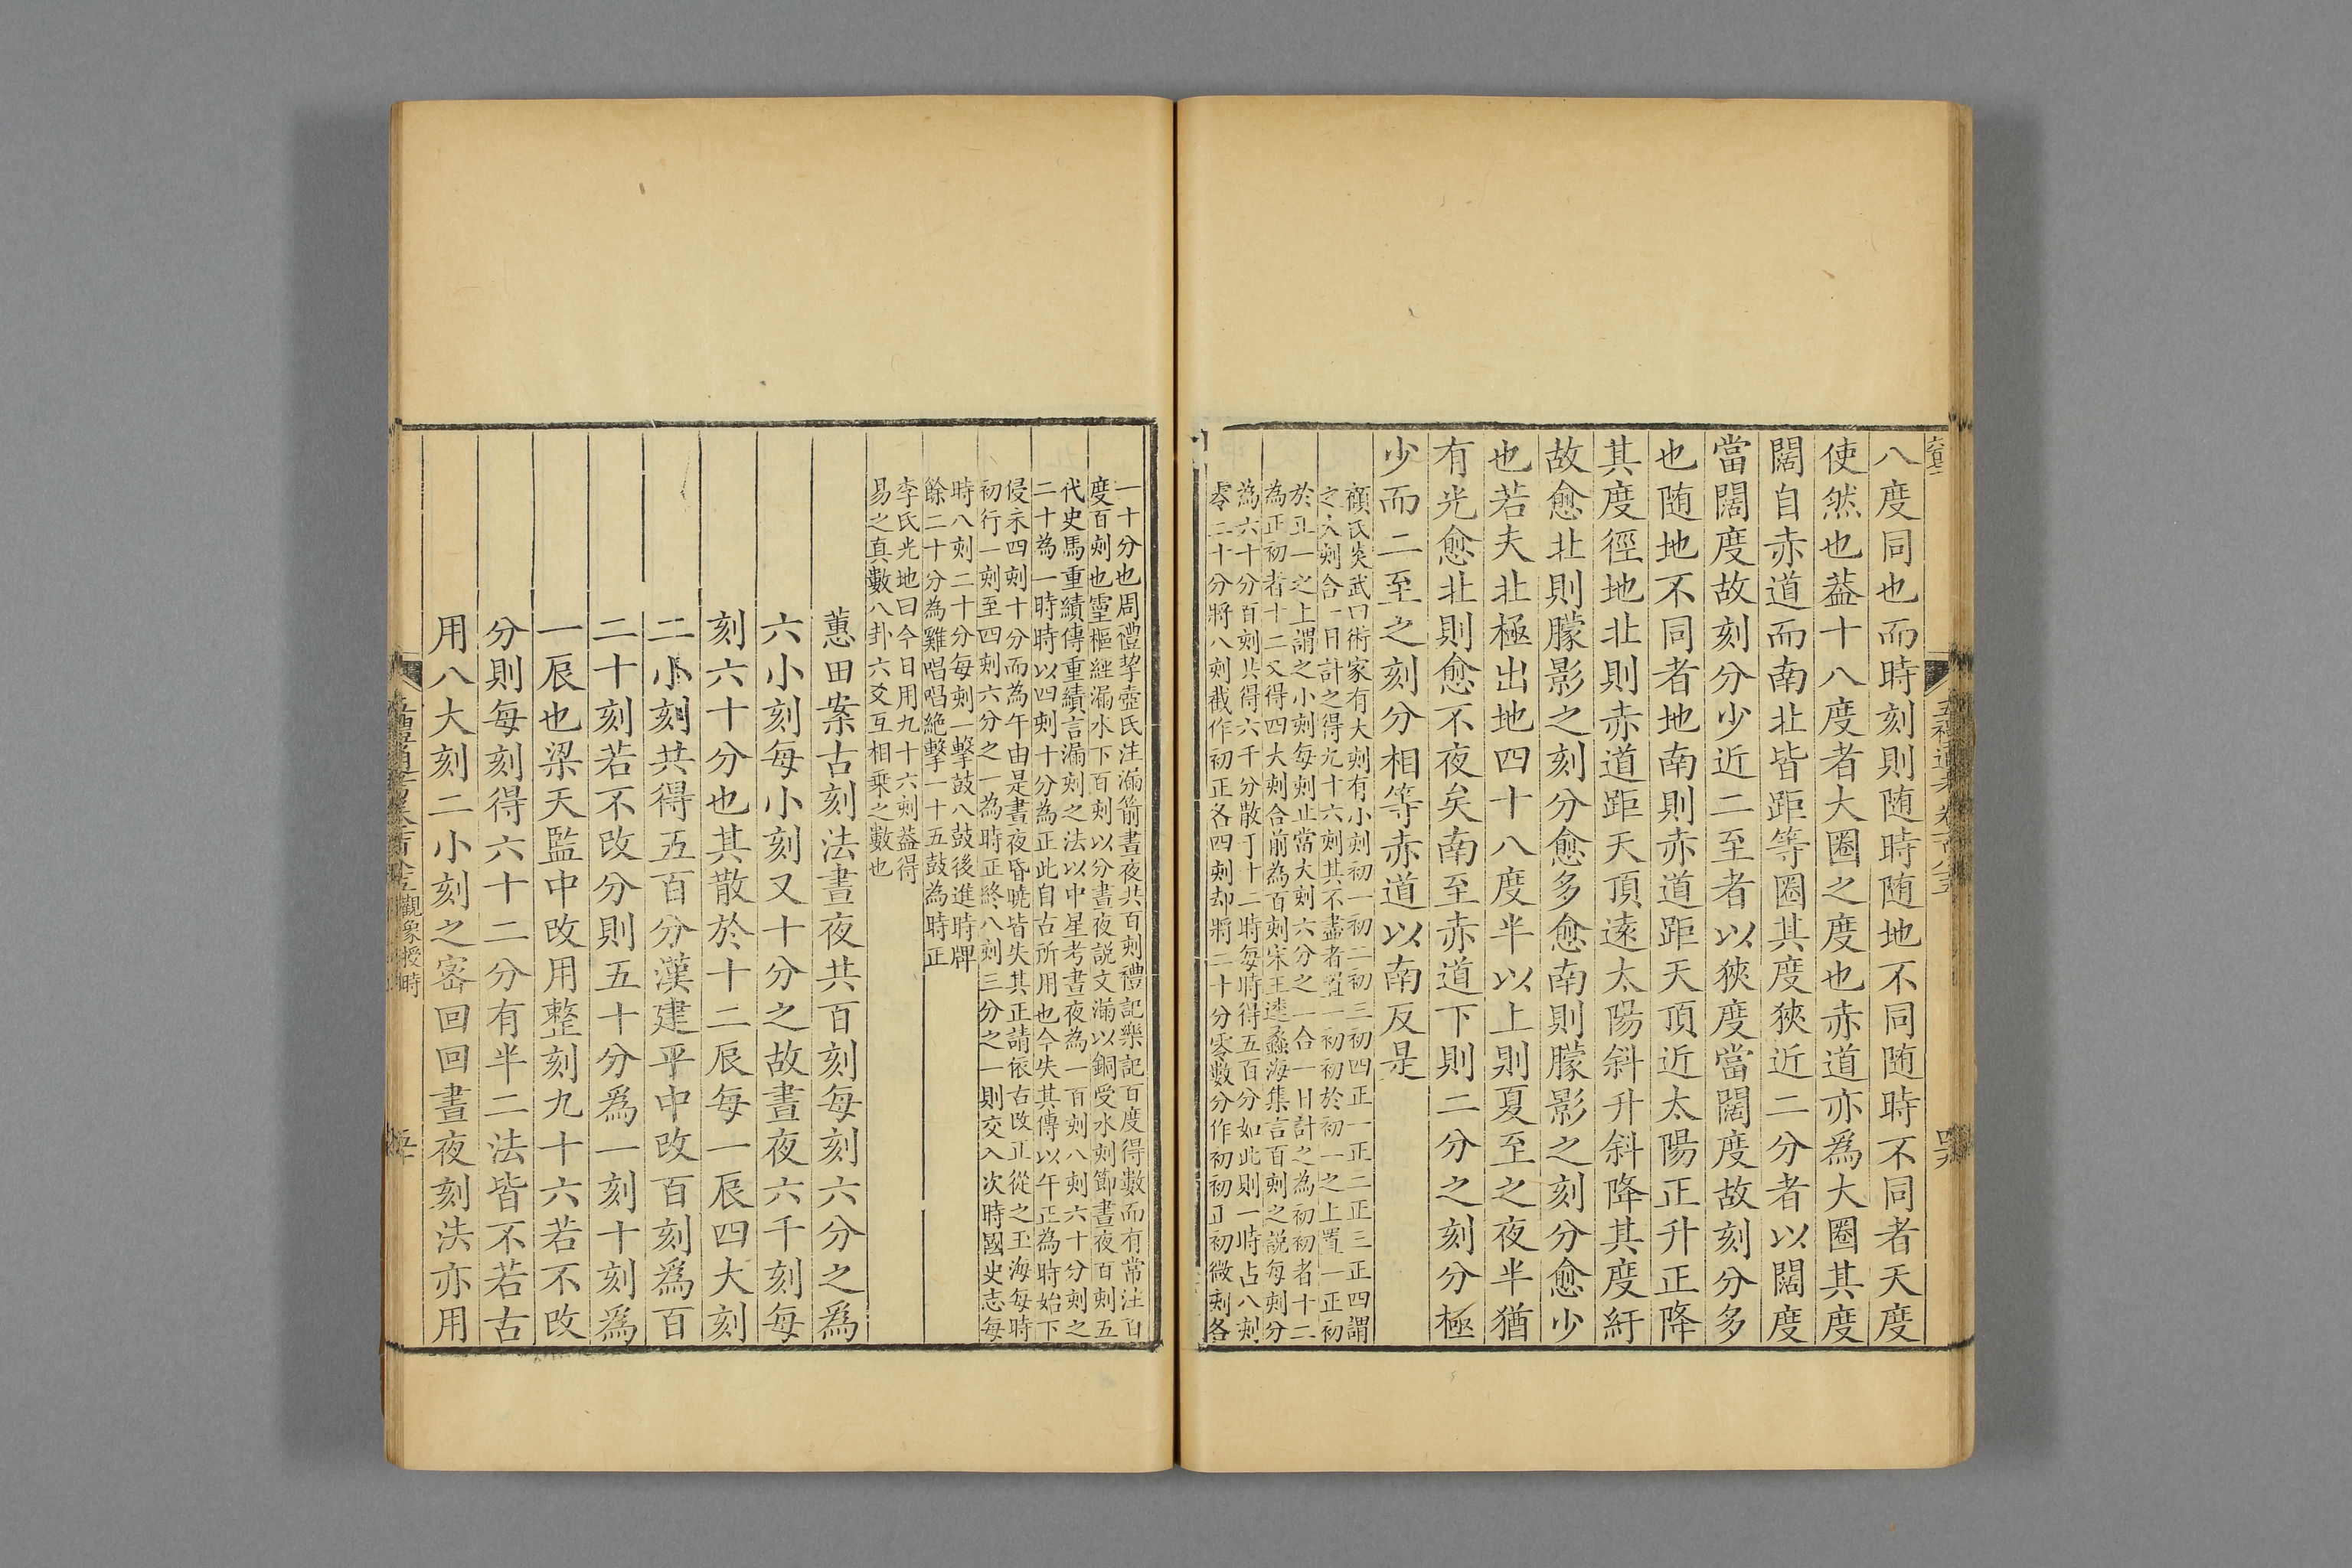 八度同也而時刻則随時随地不同随時不同者天度
使然也葢十八度者大圈之度也赤道亦爲大圈其度
闊自赤道而南北皆距等圈其度狹近二分者以闊度
當闊度故刻分少近二至者以狹度當闊度故刻分多
也随地不同者地南則赤道距天頂近太陽正升正降
其度徑地北則赤道距天頂遠太陽斜升斜降其度紆
故愈北則朦影之刻分愈多愈南則朦影之刻分愈少
也若夫北極出地四十八度半以上則夏至之夜半猶
有光愈北則愈不夜矣南至赤道下則二分之刻分極
少而二至之刻分相等赤道以南反是
顧氏炎武曰術家有大刻有小刻初一初二初三初四正一正二正三正四謂
之大刻合一日計之得九十六刻其不盡者置一初初於初一之上置一正初
於正一之上謂之小刻每刻止當大刻六分之一合一日計之為初初者十二
為正初者十二又得四大刻合前為百刻宋王逵蠡海集言百刻之説每刻分
為六十分百刻共得六千分散于十二時每時得五百分如此則一時占八刻
零二十分將八刻截作初正各四刻却將二十分零數分作初初正初微刻各
一十分也周禮挈壺氏注漏箭晝夜共百刻禮記樂記百度得數而有常注百
度百刻也靈樞經漏水下百刻以分晝夜説文漏以銅受水刻節晝夜百刻五
代史馬重績傳重績言漏刻之法以中星考晝夜為一百刻八刻六十分刻之
二十為一時時以四刻十分為正此自古所用也今失其傳以午正為時始下
侵未四刻十分而為午由是晝夜昏曉皆失其正請依古改正從之玉海每時
初行一刻至四刻六分之一為時正終八刻三分之一則交入次時國史志每
時八刻二十分每刻一擊鼓八鼓後進時牌
餘二十分為雞唱唱絶擊一十五鼓為時正
李氏光地曰今日用九十六刻葢得
易之真數八卦六爻互相乘之數也
蕙田案古刻法晝夜共百刻每刻六分之爲
六小刻每小刻又十分之故晝夜六千刻每
刻六十分也其散於十二辰每一辰四大刻
二小刻共得五百分漢建平中改百刻爲百
二十刻若不改分則五十分爲一刻十刻爲
一辰也梁天監中改用整刻九十六若不改
分則每刻得六十二分有半二法皆不若古
用八大刻二小刻之密回回晝夜刻法亦用
觀象授時